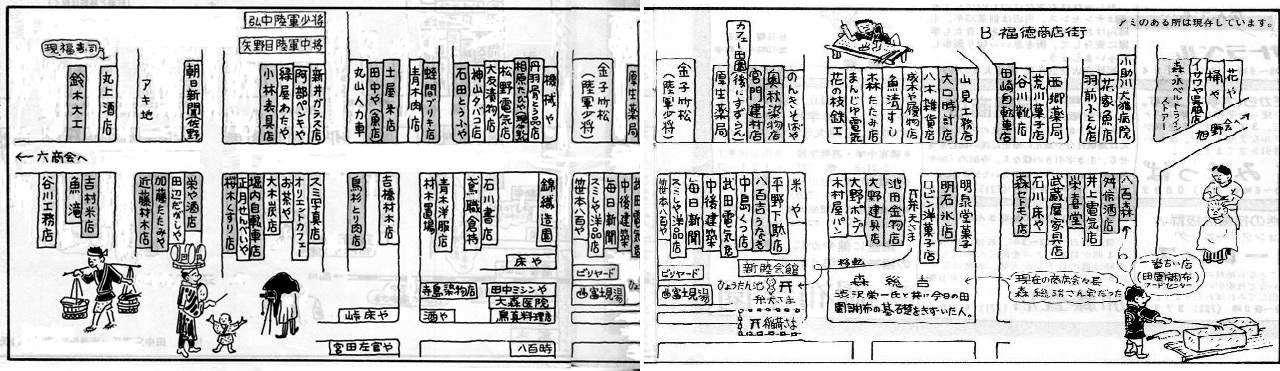 弘中陸軍少将
矢野目陸軍中将
現福寿司
鈴木大工
丸上酒店
アキ地
朝日新聞佐野
小林表具店
緑屋わたや
阿部ペンキや
新井ガラス店
丸山人力車
田中や魚店
土屋米店
吉村木肉店
蛭間ブリキ店
石田とうふや
神山タバコ店
大友漬物店
松野電気店
相原たびや
丹羽骨とう品店
機械や
金子竹松
(陸軍少将)
厚生薬局
←六商会へ
谷川工務店
魚滝
吉村米店
近藤材木店
加藤たたみや
田のだがしや
栄や酒店
桜木くすり店
正月せんべいや
堀内自動車店
大木炭店
お茶や
オリエントカフェー
スミ写真店
鳥杉とり肉店
吉橋材木店
村木置場
青木洋服店
鳶職倉持
石川書店
錦鋳造園
笹本八百や
スミレヤ洋品店
毎日新聞
中後建築
武田電気店
床や
寺島築物店
田中ミシンや
大森医院
酒や
鳥真料理店
峠床や
宮田左官や
八百時
ビリヤード
富士見湯
アミのある所は現存しています。
B 福徳商店街
カフェー田園(後にすずらん)
金子竹松
(陸軍少将)
厚生薬局
宮門建材店
奥秋染物店
のんきそばや
花の枝鉄工
まんじゅ電気
森たたみ店
魚清すし
桑木や履物店
八木雑貨店
大口時計店
山見工務店
田崎自転車店
谷川靴店
荒川菓子店
西郷薬局
羽前ふとん店
花家魚店
小助川犬猫病院
森永ベルトラインストアー
イサワや果風店
桶や
花や
旭野会へ
笹本八百や
スミレヤ洋品店
毎日新聞
中後建築
武田電気店
中島くつ店
八百吉うなぎ
平野下駄店
米や
木村屋パン
大野ポンプ
大野建具店
池田金物店
弁天さま
ロッシ洋菓子店
明石氷店
明泉堂菓子
森サトモノ店
石川床や
武蔵屋家具店
栄喜堂
井上電気店
舛信酒店
八百森
ビリヤード
新陸会館
富士見湯
ひょうたん池
弁天さま
稲荷さま
移転
森 総吉
渋沢栄一氏と共に今日の田
園調布の基礎をきずいた人。
現在の商店会々長
森総治さん宅だった
一番古い店
(田園調布
フードセンター)